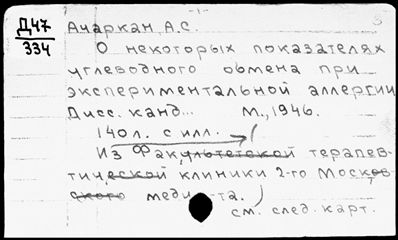 Д47
334
Ачаркан А.С.
О некоторых показателях
углеводного обмена при
экспериментальной аллергии
Дисс. канд... М., 1946.
140л. с илл.
Из Факультетской терапев-
тической клиники 2-го Москов-
ского меди та.
см. след. карт.